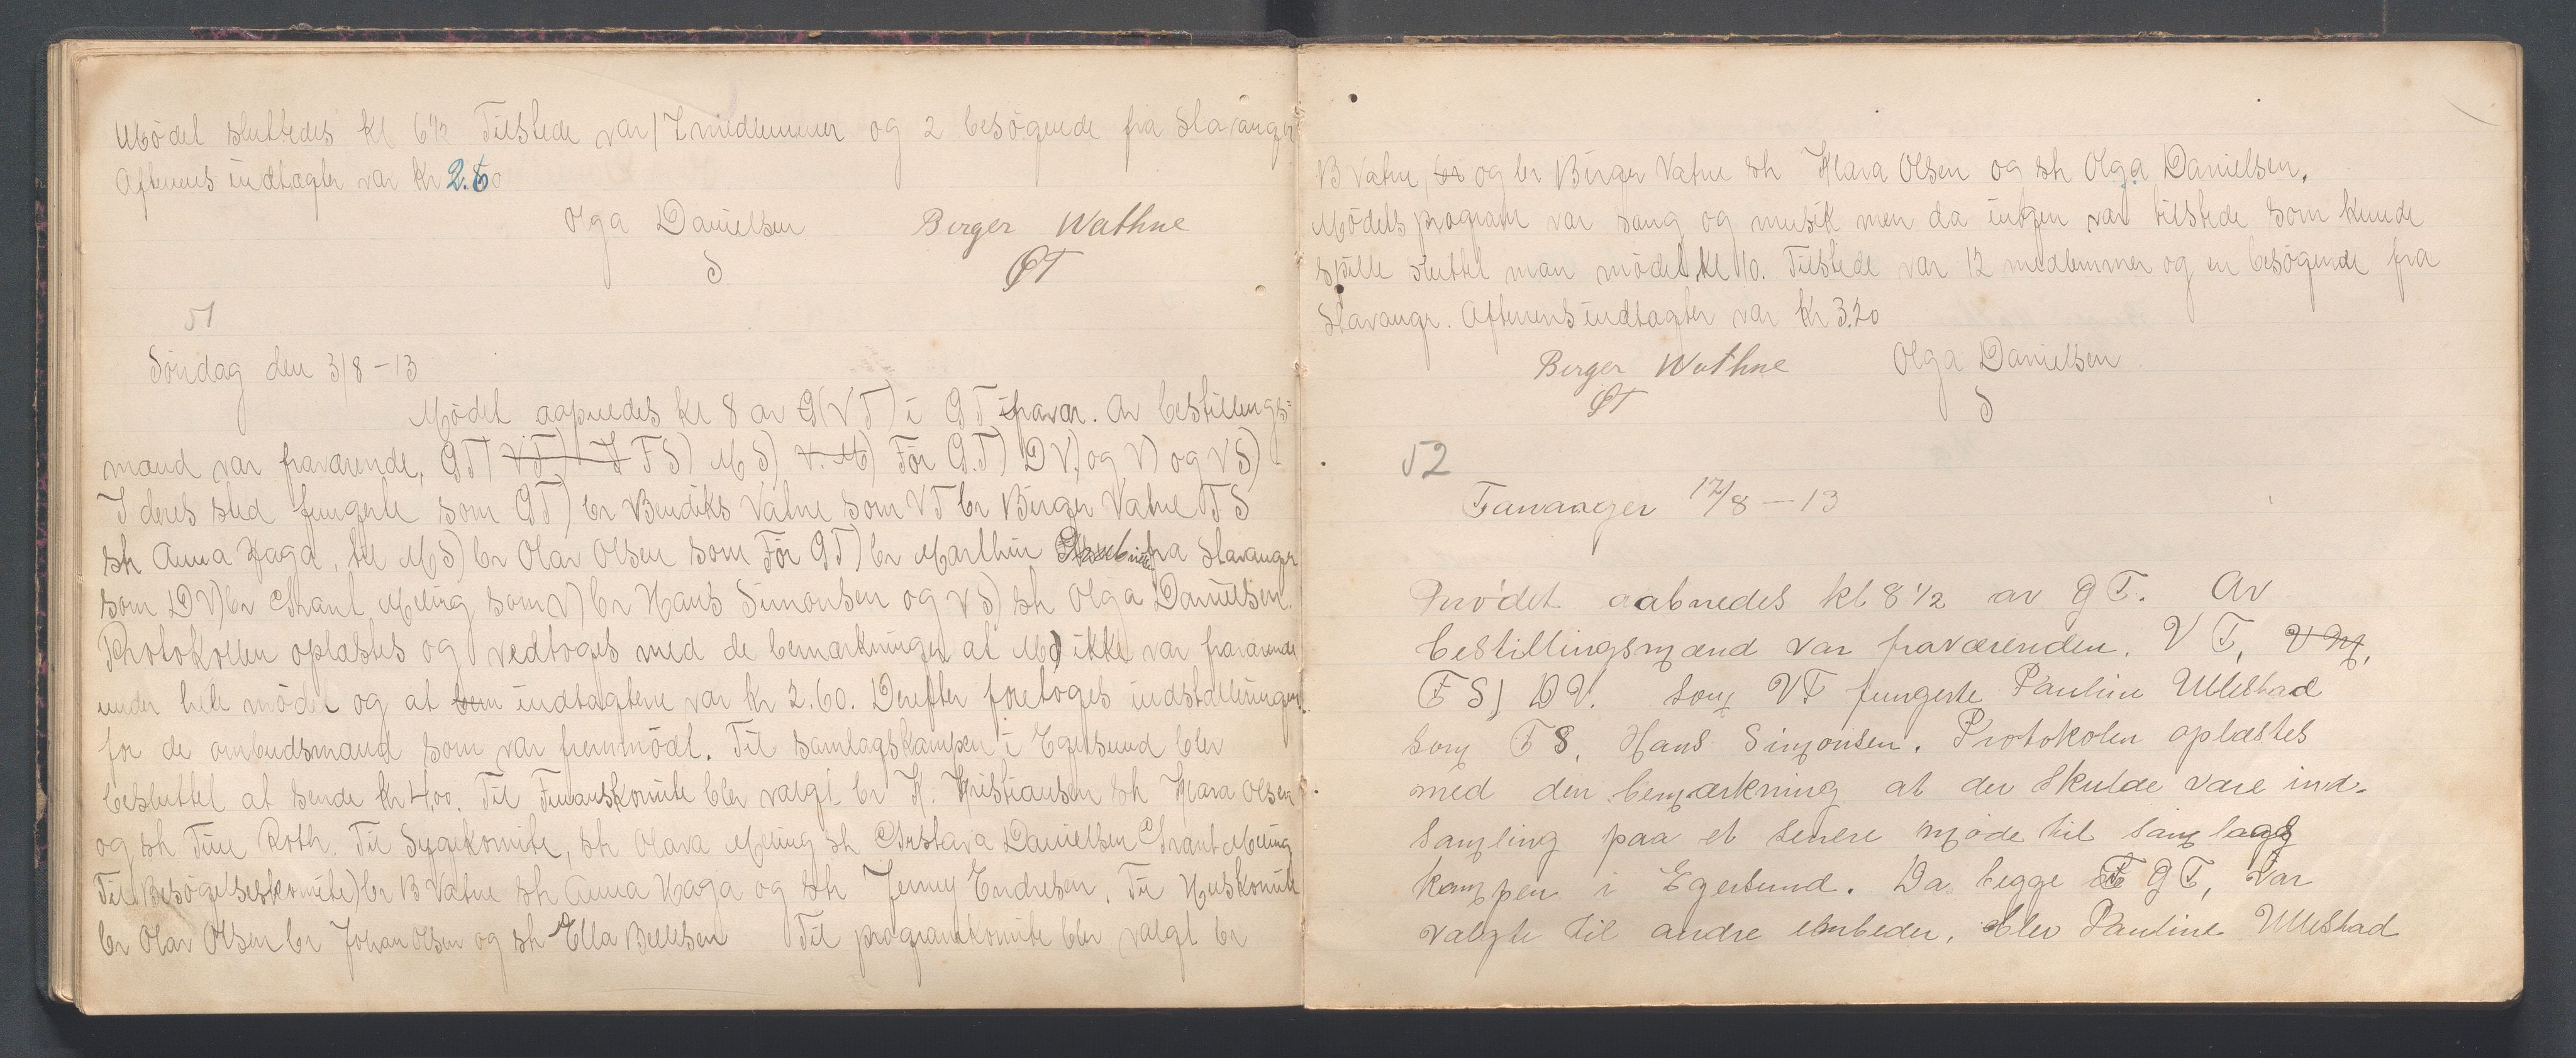 Mödet sluttedes kl 6½ Tilstede var 17 medlemmer og 2 besögende fra Stavanger
Aftenens indtægter var kr 2.60
Olga Danielsen Berger Wathne
S GT
51
Söndag den 3/8-13
Mödet aapnedes kl 8 av G(VT) i GT fravær. Av bestillings-
mænd var fraværende, GT) VT) FS) MS) V.M) För G.T) DV) og V) og VS)
I deres sted fungerte som GT) br Bendiks Vatne som VT br Birger Vatne FS
sh Anna Haga, til MS) br Olav Olsen som För GT) br Marthin fra Stavanger
som DV) br Chrant Meling som V) br Hans Simonsen og VS) sh Olga Danielsen.
Protokollen oplæstes og vedtoges med de bemærkninger at M) ikke var fraværende
under hele mödet og at indtægterne var kr 2.60. Derefter foretoges indstalleringen
for de ombudsmænd som var fremmödt. Til samlagskampen i Egersund blev
besluttet at sende kr 4,00. Til Finanskomite blev valgt br K. Kristiansen sh Klara Olsen
og sh Tine Roth. Til Sygekomite, sh Olava Meling sh Gustava Danielsen Chrant Meling
Til Besögelseskomite) br B Vatne sh Anna Haga og sh Jenny Endresen. Til Huskomite
br Olav Olsen br Johan Olsen og sh Ella Bertelsen Til programkomite blev valgt br
B Vatne og br Birger Vatne sh Klara Olsen og sh Olga Danielsen.
Mödets program var sang og musik men da ingen var tilstede som kunde
spille sluttet man mödet kl 10. Tilstede var 12 medlemmer og en besögende fra
Stavangr. Aftenens indtægter var kr 3.20
Berger Wathne Olga Danielsen
GT S
52
Tananger 17/8-13
Mødet aabnedes kl 8½ av G T. Av
bestillingsmænd var fraværenden. V T, V M,
F S) D V. som VT fungerte Pauline Ullestad
som F S, Hans Simonsen. Protokolen oplæstes
med den bemærkning at der skulde være ind-
samling paa et senere møde til samlags
kampen i Egersund. Da begge GT, var
valgte til andre embeder, blev Pauline Ullestad